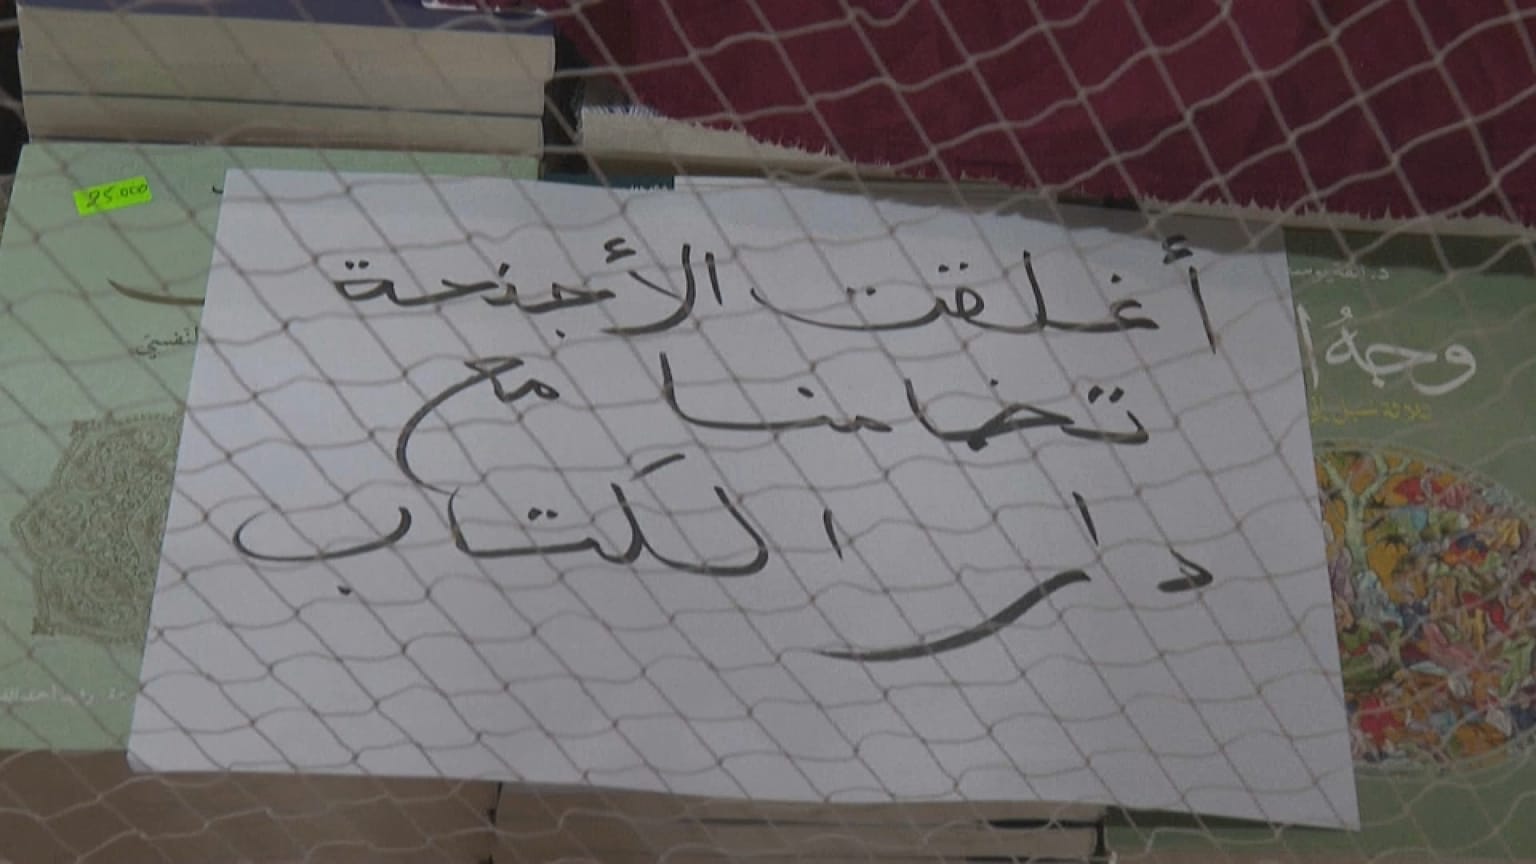 أغلقت الأجنحة
تضامنا مع
دار الكتاب
25.000
وجهُ